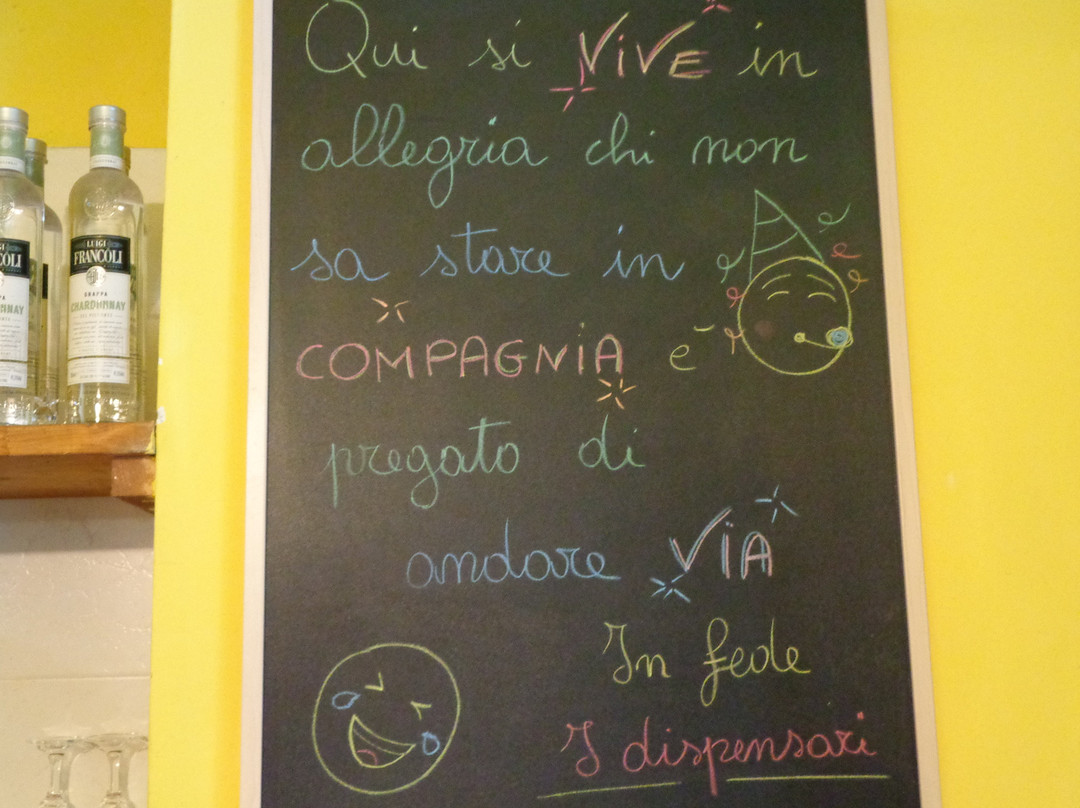 Qui si VIVE in
allegria chi non
sa stare in
COMPAGNIA e'
pregato di
andare VIA
In fede
I dispensari
LUIGI
FRANCOLI
GRAPPA
CHARDONNAY